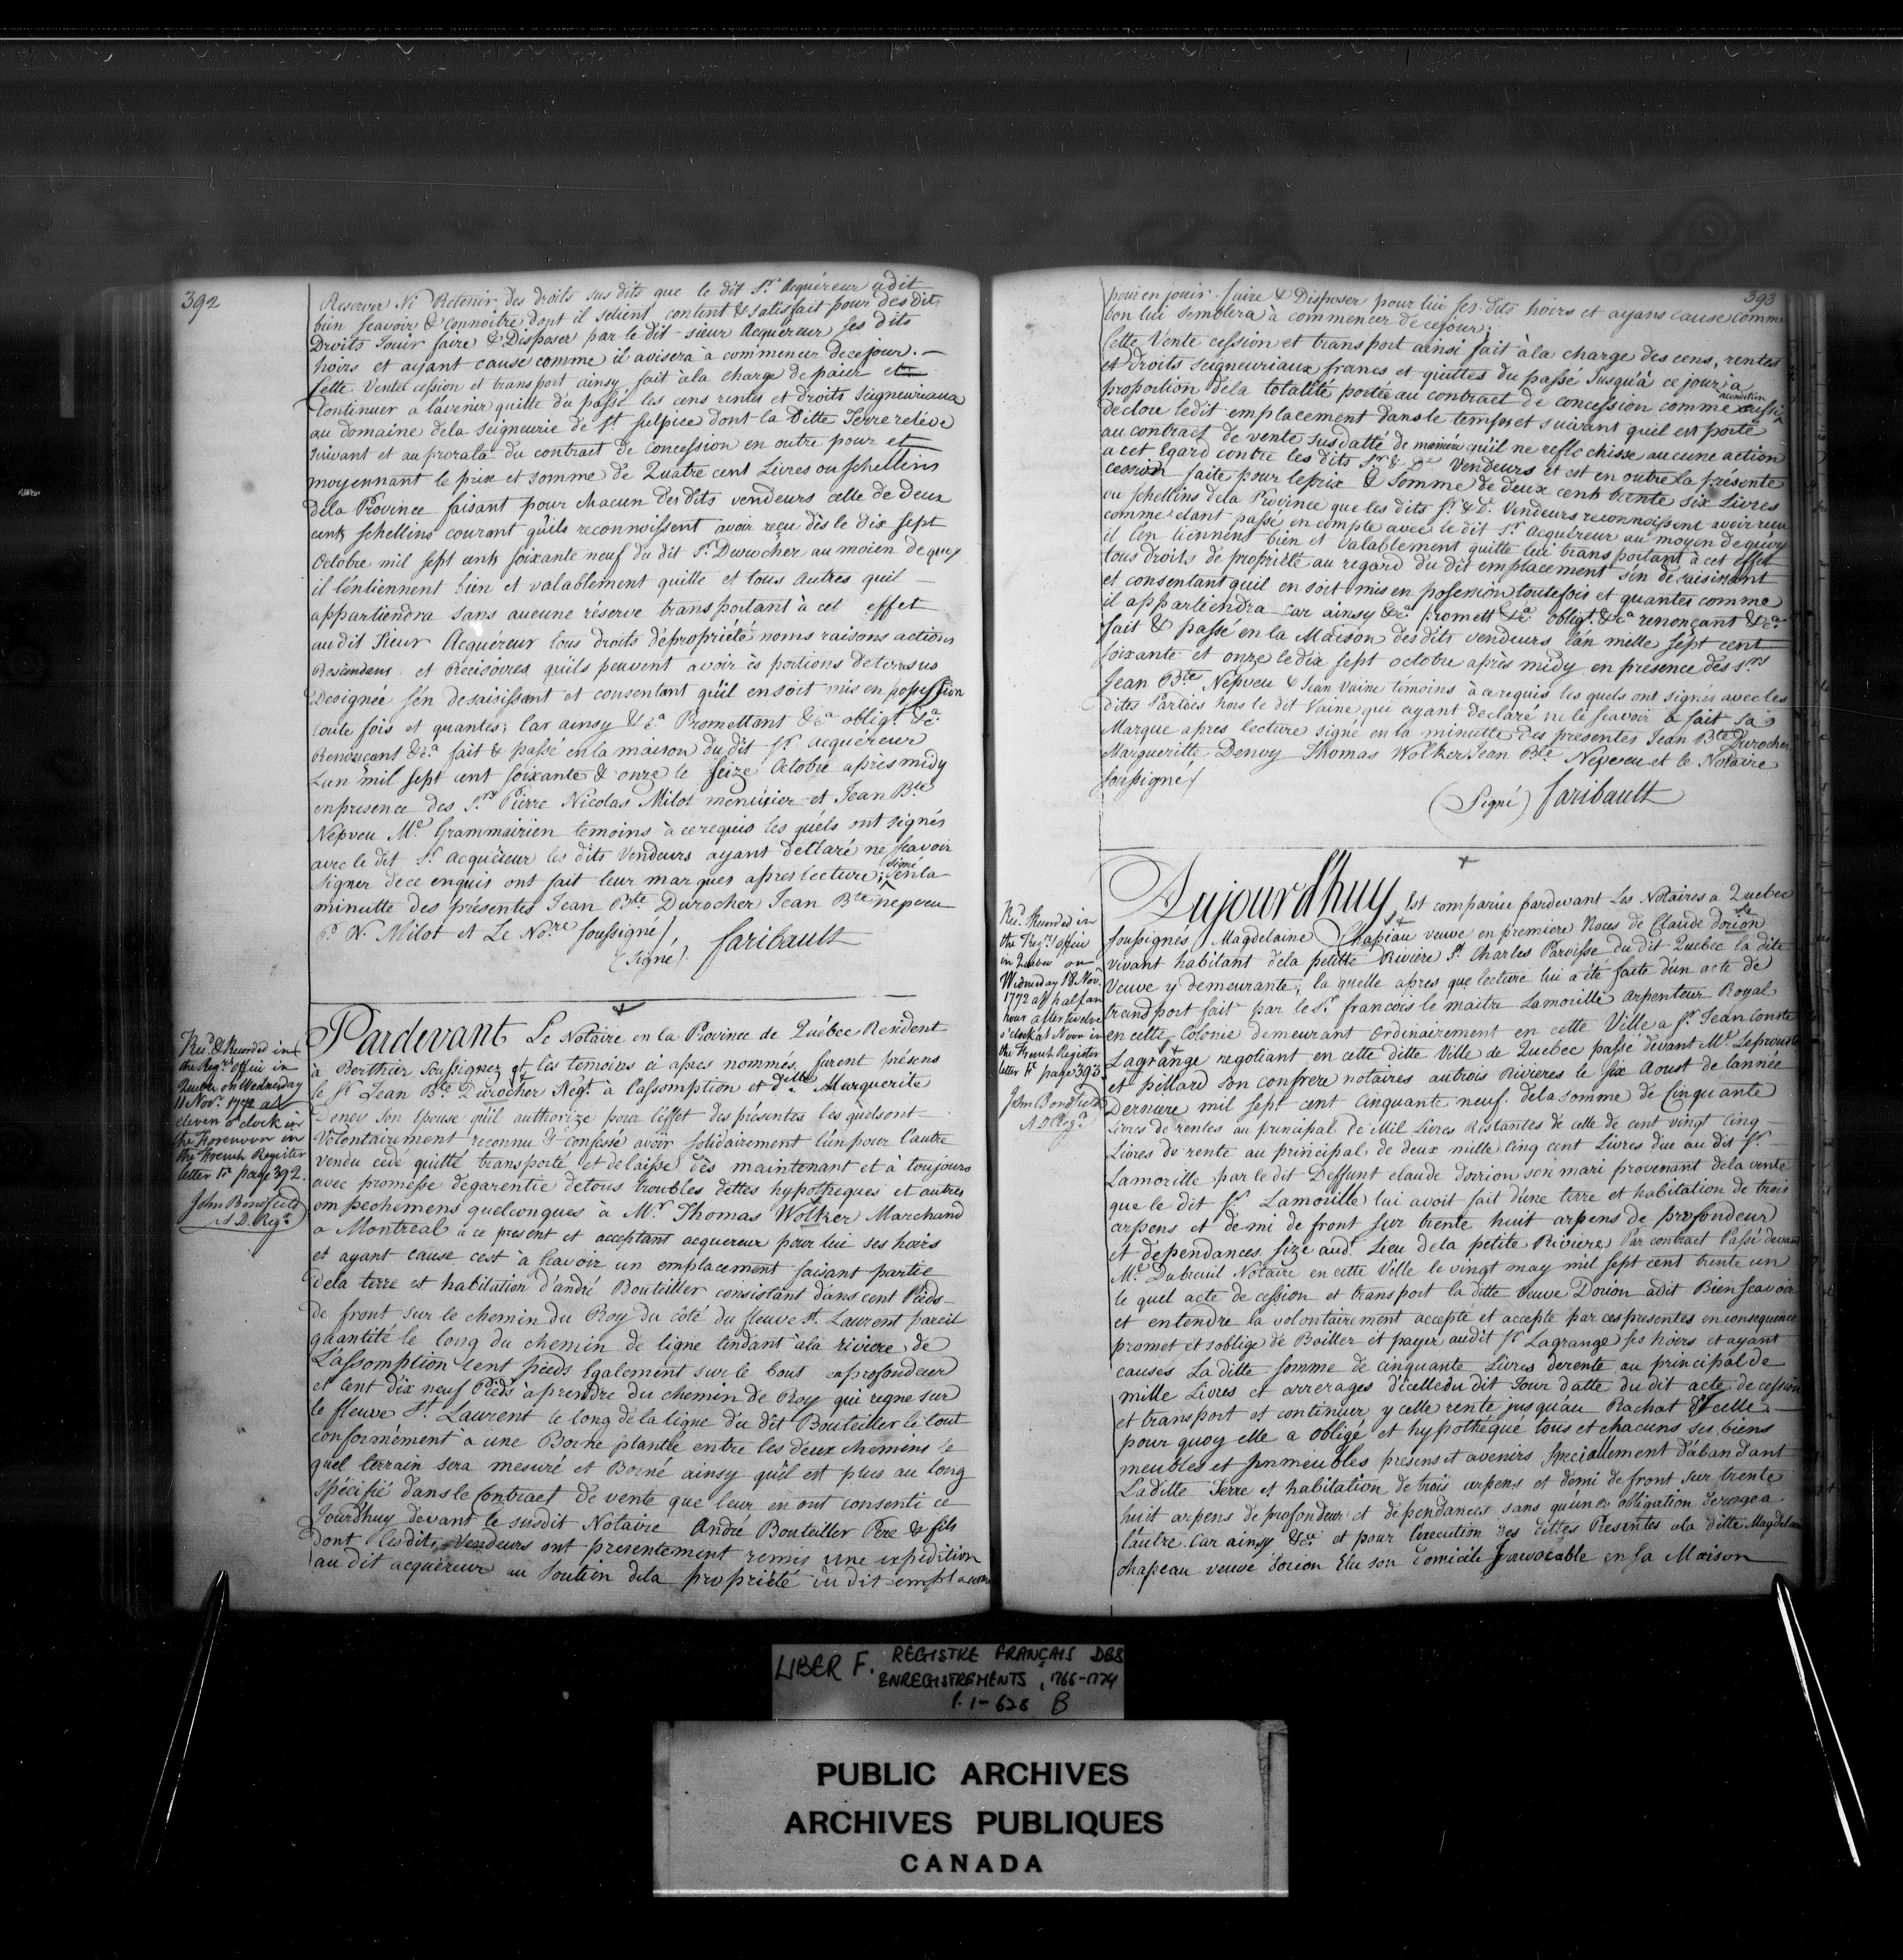 392
Reserver Ni Retenir des droits sus dits que le dit Sr. Acquéreur a dit
bien scavoir & connoitre dont il se tient content & satisfait pour des dits
Droits Jouir faire & Disposer par le dit sieur Acquereur ses dits
hoirs et ayant cause comme il avisera à commencer de cejour. —
Cette Vente cession et transport ainsy fait àla charge de païer et
Continuer a l'avenir quitte du passé les cens rentes et droits Seigneuriaux
au domaine dela Seigneurie de St. Sulpice dont la Ditte Terre relève
suivant et au prorata du contract de Concession en outre pour et
moyennant le prix et somme de Quatre cent Livres ou schellins
dela Province faisant pour chacun des dits vendeurs celle de Deux
cents schellins courant qu'ils reconnoissent avoir reçu dès le dix sept
Octobre mil sept cents soixante neuf du dit Sr. Durocher au moïen de quoy
il l'entiennent bien et valablement quitte et tous autres quil
appartiendra sans aucune réserve transportant à cet effet
au dit Sieur Acquéreur tous droits de propriété noms raisons actions
Rescindans et Récisoires qu'ils peuvent avoir ès portions de terre sus
Designée s'en desaisissant et consentant qu'il en soit mis en possession
toute fois et quantes; Car ainsy &ca. Promettant &ca obligt. &ca.
Renonçant &ca fait & passé en la maison du dit Sr. acquéreur
Lan mil sept cent soixante & onze le Seize Octobre apres midy
en presence des Srs Pierre Nicolas Milot menuisier et Jean Bte
Nepveu Me Grammairien temoins à ce requis les quels ont signés
avec le dit Sr. Acquéreur les dits Vendeurs ayant declaré ne scavoir
signer de ce enquis ont fait leur marques apres lecture; signé en la
minutte des présentes Jean Bte. Durocher Jean Bte nepveu
P. N. Milot et Le Nore. soussigné /
(signé) Faribault
Recd. & Recorded in
the Regrs office in
Quebec on Wednesday
11 Novr. 1772 at
eleven o'clock in
the Forenoon in
the French Register
letter F. page 392.
John Bondfield
A D. Regr.
Pardevant Le Notaire en la Province de Québec Resident
à Berthier Soussignez et les temoins ci apres nommés, furent présens
le Sr. Jean Bte. Durocher Négt. à l'assomption et Delle Marguerite
Denoy Son Epouse qu'il authorize pour l'effet des présentes les quels ont
Volontairement reconnu & confessé avoir solidairement l'un pour l'autre
vendu cedé quitté transporté et delaissé dès maintenant et à toujours
avec promesse degarentie detous troubles dettes hypotheques et autres
empechemens quelconques à Mr Thomas Wolker Marchand
a Montreal à ce present et acceptant acquereur pour lui ses hoirs
et ayant cause cest à scavoir un emplacement faisant partie
dela terre et habitation d'andré Bouteiller consistant dans cent Pieds
de front sur le chemin du Roy du côté du fleuve St. Laurent pareil
quantité le long du chemin de ligne tendant àla riviere de
L'assomption cent pieds Egalement sur le bout en profondeur
et Cent dix neuf Pieds à prendre du chemin de Roy qui regne sur
le fleuve St. Laurent le long de la ligne du dit Bouteiller le tout
conformément à une Borne plantée entre les deux chemins le
quel terrain sera mesuré et Borné ainsy qu'il est plus au long
spécifié dans le Contract de vente que leur en ont consenti ce
Jourdhuy devant le susdit Notaire André Bouteiller Pere & fils
dont lesdits Vendeurs ont presentement remis une expédition
au dit acquéreur au soutien dela propriété du dit emplacement
393
pour en jouir faire & Disposer pour lui ses dits hoirs et ayans cause comme
bon lui semblera à commencer de cejour;
Cette Vente cession et transport ainsi fait àla charge des cens, rentes
et droits seigneuriaux francs et quittes du passé Jusqu'à ce jour a
proportion dela totalité portée au contract de concession comme aussi a condition
declore ledit emplacement dans le temps et suivant quil est porté
au contract de vente susdatté de manière qu'il ne reflechisse aucune action
a cet Egard contre les dits Sr. & De. Vendeurs et est en outre la présente
cession faite pour le prix & somme de deux cents trente six Livres
ou schellins dela Province que les dits Sr. & De. Vendeurs reconnoissent avoir reçu
comme etant passé en compte avec le dit Sr. Acquéreur au moyen dequoy
il l'en tiennent bien et Valablement quitte lui transportant à cet effet
tous droits de propriété au regard du dit emplacement s'en desaisissant
et consentant quil en soit mis en possession toutefois et quantes comme
il appartiendra car ainsy &ca. Promett &ca obligt. &ca renonçant &ca.
fait & passé en la Maison des dits vendeurs l'an mille sept cent
soixante et onze le dix sept octobre après midy en presence des srs
Jean Bte. Nepveu & Jean Vaine témoins à ce requis les quels ont signés avec les
dites Parties hors le dit Vaine qui ayant declaré ne le scavoir a fait sa
Marque apres lecture signé en la minutte des presentes Jean Bte Durocher
Margueritte Denoy Thomas Wolker Jean Bte. Nepveu et le Notaire
soussigné /
(Signé) Faribault
Recd. Recorded in
the Regrs office
in Quebec on
Wednesday 18 Novr.
1772 at half an
hour after twelve
o'clock at Noon in
the French Register
letter F. page 393
John Bondfield
A D Regr.
Aujourdhuy Est comparüe pardevant Les Notaires a Quebec
soussignés Magdelaine Chapeau veuve en premiere Noces de Claude Dorion
vivant habitant dela petitte Riviere St. Charles Paroisse du dit Quebec la dite
Veuve y demeurante; la quelle apres que lecture lui a été faite d'un acte de
transport fait par le Sr. francois le maitre Lamorille Arpenteur Royal
en cette Colonie demeurant ordinairement en cette Ville a Sr. Jean Conste
Lagrange negotiant en cette ditte Ville de Quebec passé devant Me. Leproust
et Pillard son confrere notaires autrois Rivieres le six Aoust de lannée
Derniere mil sept cent Cinquante neuf. dela somme de Cinquante
Livres de rentes au principal de Mil Livres Restantes de celle de cent vingt Cinq
Livres de rente au principal de deux mille cinq cent Livres due au dit Sr.
Lamorille par le dit Deffunt claude Dorrion son mari provenant dela vente
que le dit Sr. Lamorille lui avoit fait d'une terre et habitation de trois
arpens et demi de front sur trente huit arpens de profondeur
et dépendances size audt. Lieu dela petite Riviere Par contract Passé devant
Me. Dubreuil Notaire en cette Ville le vingt may mil sept cent trente un
le quel acte de cession et transport la ditte veuve Dorion adit Bien scavoir
et entendre la volontairement accepté et accepte par ces presentes en consequence
promet et soblige de Bailler et payer audit Sr Lagrange ses hoirs et ayant
causes La ditte somme de cinquante Livres derente au principal de
mille Livres et arrerages d'icelle du dit Jour datte du dit acte de cession
et transport et continuer ycelle rente jusquau Rachat d'icelle
pour quoy elle a obligé et hypothéqué tous et chacuns ses biens
meubles et Immeubles presens et avenirs Speciallement d'abandant
Laditte Terre et habitation de trois arpens et demi de front sur trente
huit arpens de profondeur et dépendances sans qu'une obligation deroge a
l'autre. Car ainsy &ca et pour l'execution des dittes Presentes ala ditte Magdelaine
chapeau veuve Dorion Elu son Domicile Irrevocable en sa Maison
LIBER F. REGISTRE FRANÇAIS DES
ENREGISTREMENTS, 1766-1774
P. 1-628 B
PUBLIC ARCHIVES
ARCHIVES PUBLIQUES
CANADA